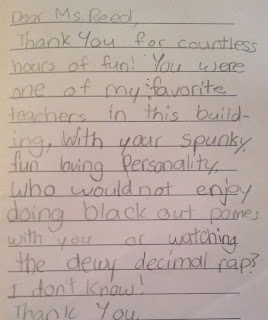 Dear Ms. Reed,
Thank You for countless
hours of fun! You were
one of my favorite
teachers in this build-
ing, With your spunky
fun loving Personality,
who would not enjoy
doing black out pomes
with you or watching
the dewy decimal rap?
I don't know!
Thank You